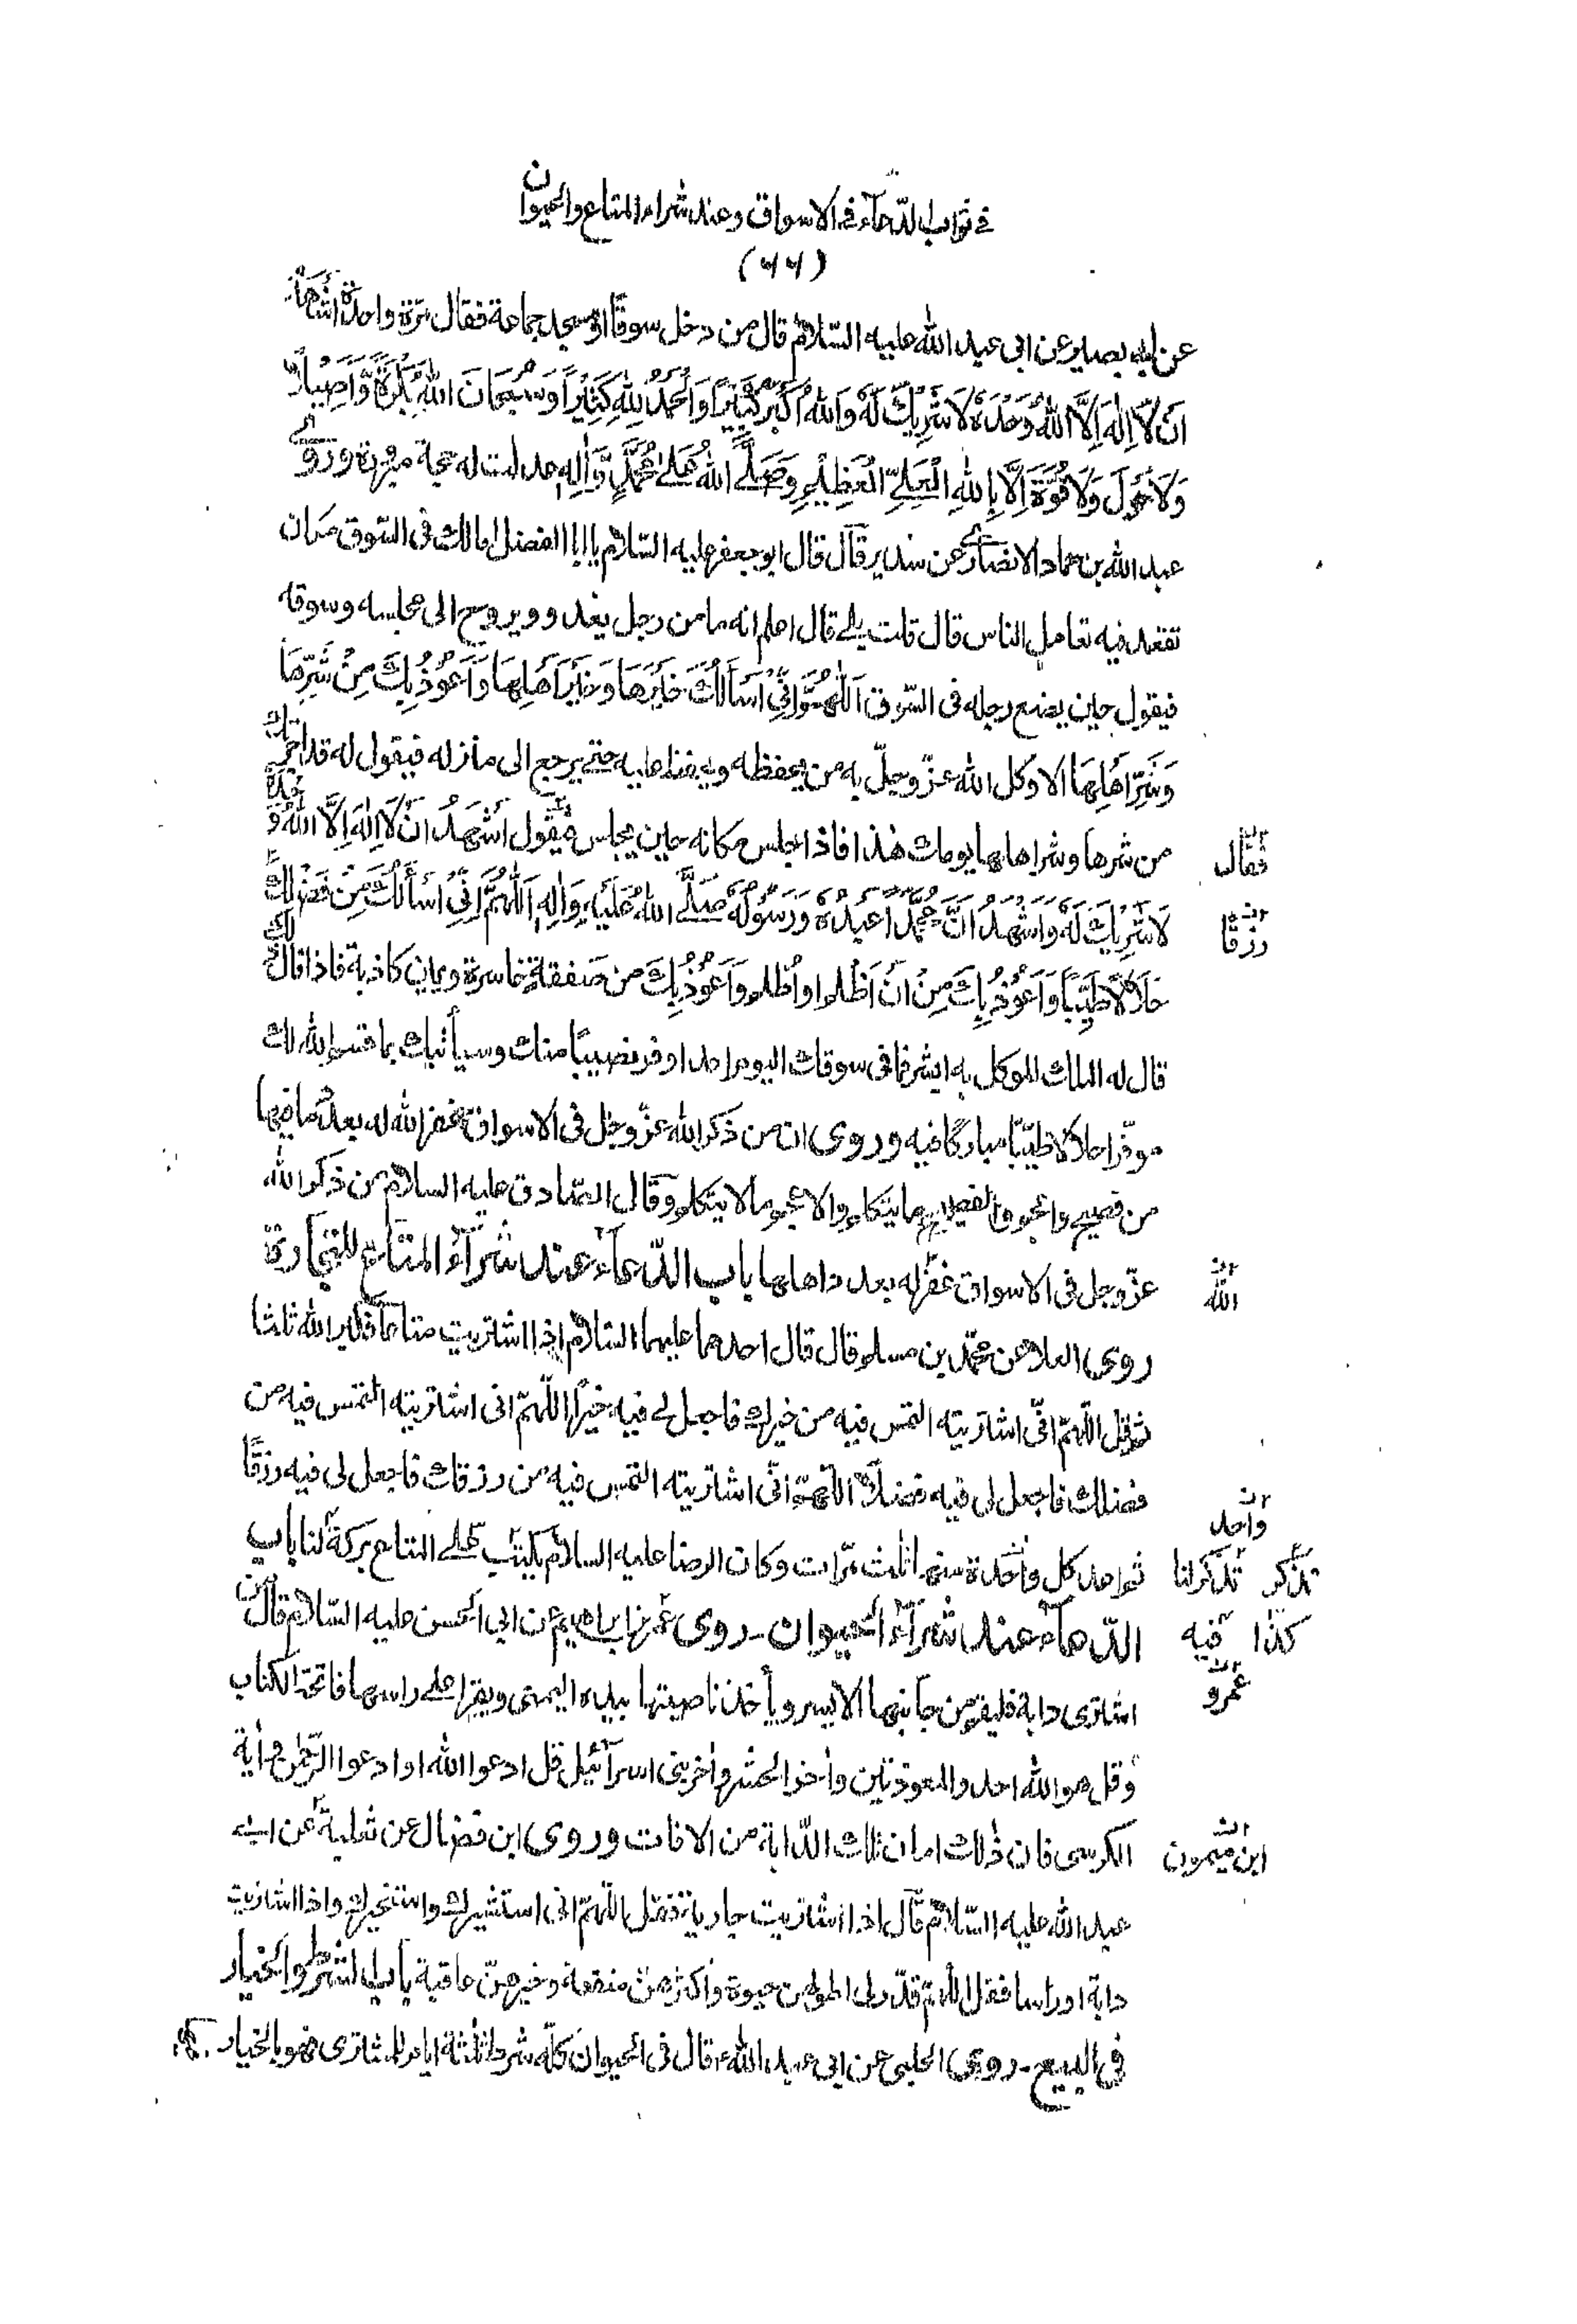 في ثواب الدّعآء في الاسواق وعند شراء المتاع والحيوان
(٦٦)
عن ابي بصير عن ابي عبد الله عليه السّلام قال من دخل سوقًا او مسجد جماعة فقال مرّة واحدة اَشْهَدُ
اَنْ لَّا اِلٰهَ اِلَّا اللهُ وَحْدَهٗ لَا شَرِيْكَ لَهٗ وَاللهُ اَكْبَرُ كَبِيْرًا وَالْحَمْدُ لِلّٰهِ كَثِيْرًا وَسُبْحَانَ اللهِ بُكْرَةً وَّاَصِيْلًا
وَلَا حَوْلَ وَلَا قُوَّةَ اِلَّا بِاللهِ الْعَلِيِّ الْعَظِيْمِ وَصَلَّى اللهُ عَلٰى مُحَمَّدٍ وَّاٰلِهٖ عدلت له حجة مبرورة وروى
عبد الله بن حماد الانصاري عن سدير قال قال ابو جعفر عليه السلام يا ابا الفضل اما لك في السّوق مكان
تقعد فيه تعامل الناس قال قلت بلى قال اعلم انه ما من رجل يغدو ويروح الى مجلسه وسوقه
فيقول حين يضع رجله في السّوق اَللّٰهُمَّ اِنِّيْ اَسْأَلُكَ خَيْرَهَا وَخَيْرَ اَهْلِهَا وَاَعُوْذُ بِكَ مِنْ شَرِّهَا
وَشَرِّ اَهْلِهَا الا وكل الله عزّ وجلّ به من يحفظه ويحفظ عليه حتى يرجع الى منزله فيقول له قد اجرتك
من شرها وشر اهلها يومك هذا فاذا جلس مكانه حين يجلس فيقول اَشْهَدُ اَنْ لَا اِلٰهَ اِلَّا اللهُ وَحْدَهٗ
فقال
لَا شَرِيْكَ لَهٗ وَاَشْهَدُ اَنَّ مُحَمَّدًا عَبْدُهٗ وَرَسُوْلُهٗ صَلَّى اللهُ عَلَيْهِ وَاٰلِهٖ اَللّٰهُمَّ اِنِّيْ اَسْأَلُكَ مِنْ فَضْلِكَ
رزقًا
حَلَالًا طَيِّبًا وَاَعُوْذُ بِكَ مِنْ اَنْ اَظْلِم او اُظْلم وَاَعُوْذُ بِكَ من صفقة خاسرة ويمين كاذبة فاذا قال ذلك
قال له الملك الموكل به ابشر فما في سوقك اليوم احد اوفر نصيبًا منك وسيأتيك بما قسم الله لك
موفّرا حلالا طيّبًا مباركًا فيه وروى ان من ذكر الله عزّ وجل في الاسواق غفر الله له بعدد ما فيها
من فصيح واعجم والفصيح ما يتكلم والاعجم ما لا يتكلم وقال الصّادق عليه السلام من ذكر الله
عزّ وجل في الاسواق غفر له بعدد اهلها باب الدّعآء عند شرآء المتاع للتجارة
الله
روى العلا عن محمّد بن مسلم قال قال احدهما عليهما السّلام اذا اشتريت متاعًا فكبر الله ثلثا
ثم قل اللّٰهمّ انّي اشتريته التمس فيه من خيرك فاجعل لي فيه خيرًا اللّٰهمّ اني اشتريته التمس فيه من
فضلك فاجعل لي فيه فضلًا اللّٰهمّ انّي اشتريته التمس فيه من رزقك فاجعل لي فيه رزقًا
واحد
ثم اعد كل واحدة منها ثلث مرّات وكان الرضا عليه السلام يكتب على المتاع بركة لنا باب
تذكر تذكر لنا
الدّعآء عند شرآء الحيوان ـ روى عمر بن ابراهيم عن ابي الحسن عليه السّلام قال من
كذا فيه
عمرو
اشترى دابة فليقم من جانبها الايسر ويأخذ ناصيتها بيده اليمنى ويقرا على راسها فاتحة الكتاب
وقل هو الله احد والمعوذتين واٰخر الحشر واٰخر بني اسرآئيل قل ادعوا الله او ادعوا الرّحمٰن واٰية
الكرسي فان ذٰلك امان تلك الدّابة من الافات وروى ابن فضال عن ثعلبة عن ابي
ابن ميمون
عبد الله عليه السّلام قال اذا اشتريت جارية فقل اللّٰهمّ اني استشيرك واستخيرك واذا اشتريت
دابة او راسا فقل اللّٰهمّ قدّر لي اطولهن حيوة واكثرهنّ منفعة وخيرهنّ عاقبة باب الشرط والخيار
في البيع ـ روى الحلبي عن ابي عبد الله ع قال في الحيوان كلّه شرط ثلثة ايام للمشترى فهو بالخيار